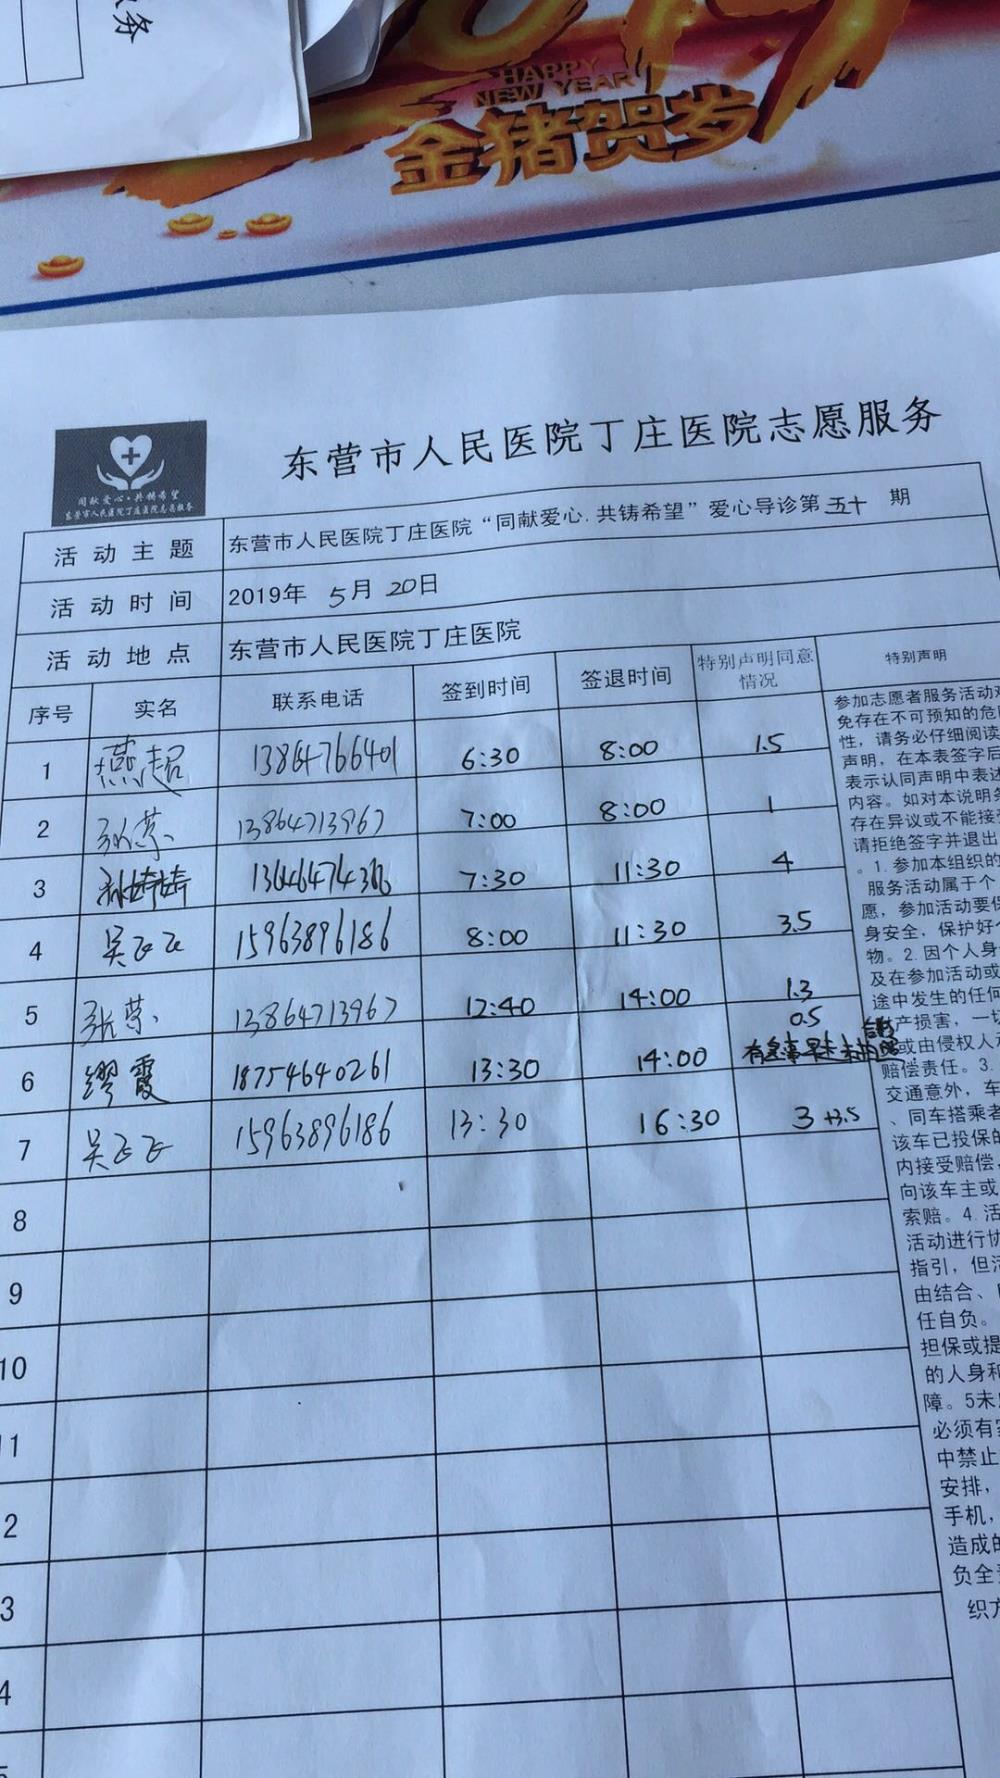 务
2019
HAPPY
NEW YEAR
金猪贺岁
同献爱心·共铸希望
东营市人民医院丁庄医院志愿服务
东营市人民医院丁庄医院志愿服务
活动主题 东营市人民医院丁庄医院“同献爱心.共铸希望”爱心导诊第五十 期
活动时间 2019年 5月 20日
活动地点 东营市人民医院丁庄医院
序号 实名 联系电话 签到时间 签退时间 特别声明同意情况 特别声明
1 燕超 13864766401 6:30 8:00 1.5
2 张蒙 13864713967 7:00 8:00 1
3 婷婷 7:30 11:30 4
4 吴飞飞 15963896186 8:00 11:30 3.5
5 张蒙 13864713967 12:40 14:00 1.3
6 缪霞 18754640261 13:30 14:00 0.5 有急事早走
7 吴飞飞 15963896186 13:30 16:30 3 +3.5
8
9
10
11
2
3
4
参加志愿者服务活动难
免存在不可预知的危
性，请务必仔细阅读
声明，在本表签字后
表示认同声明中表述
内容。如对本说明条
存在异议或不能接受
请拒绝签字并退出
。1.参加本组织的
服务活动属于个
愿，参加活动要保
身安全，保护好个
物。2.因个人身
及在参加活动或
途中发生的任何
财产损害，一切
或由侵权人承
赔偿责任。3.
交通意外，车
、同车搭乘者
该车已投保的
内接受赔偿，
向该车主或
索赔。4.活
活动进行协
指引，但活
由结合、
任自负。
担保或提
的人身和
障。5未
必须有家
中禁止
安排，
手机，
造成的
负全责
织方